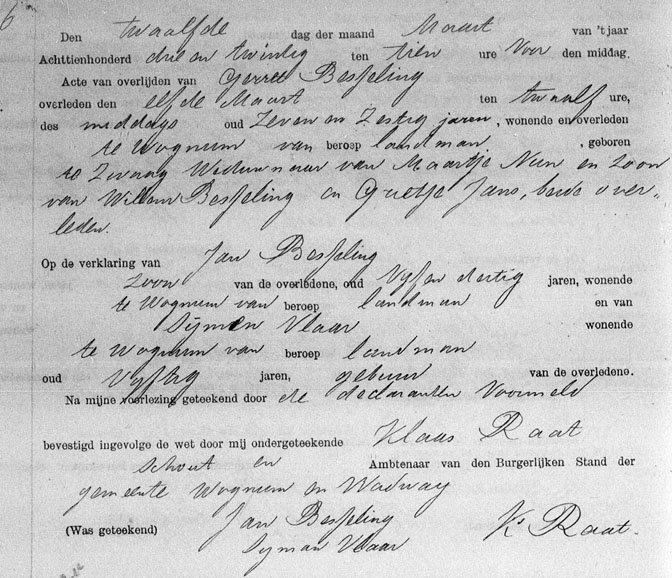 6
Den twaalfde dag der maand Maart van 't jaar
Achttienhonderd drie en twintig ten tien ure Voor den middag.
Acte van overlijden van Gerrit Besseling
overleden den elfde Maart ten twaalf ure,
des middags oud Zeven en Zestig jaren, wonende en overleden
te Wognum van beroep landman, geboren
te Zwaag Weduwnaar van Maartje Nen en Zoon
van Willem Besseling en Grietje Jans, beide over-
leden.
Op de verklaring van Jan Besseling
Zoon van de overledene, oud Vyf en dertig jaren, wonende
te Wognum van beroep landman en van
Sijmen Vlaar wonende
te Wognum van beroep landman
oud Vyftig jaren, gebuur van de overledene.
Na mijne voorlezing geteekend door de declaranten Voormeld
bevestigd ingevolge de wet door mij ondergeteekende Klaas Raat
Schout en Ambtenaar van den Burgerlijken Stand der
gemeente Wognum en Wadway
(Was geteekend) Jan Besseling K.s Raat.
Syman Vlaar